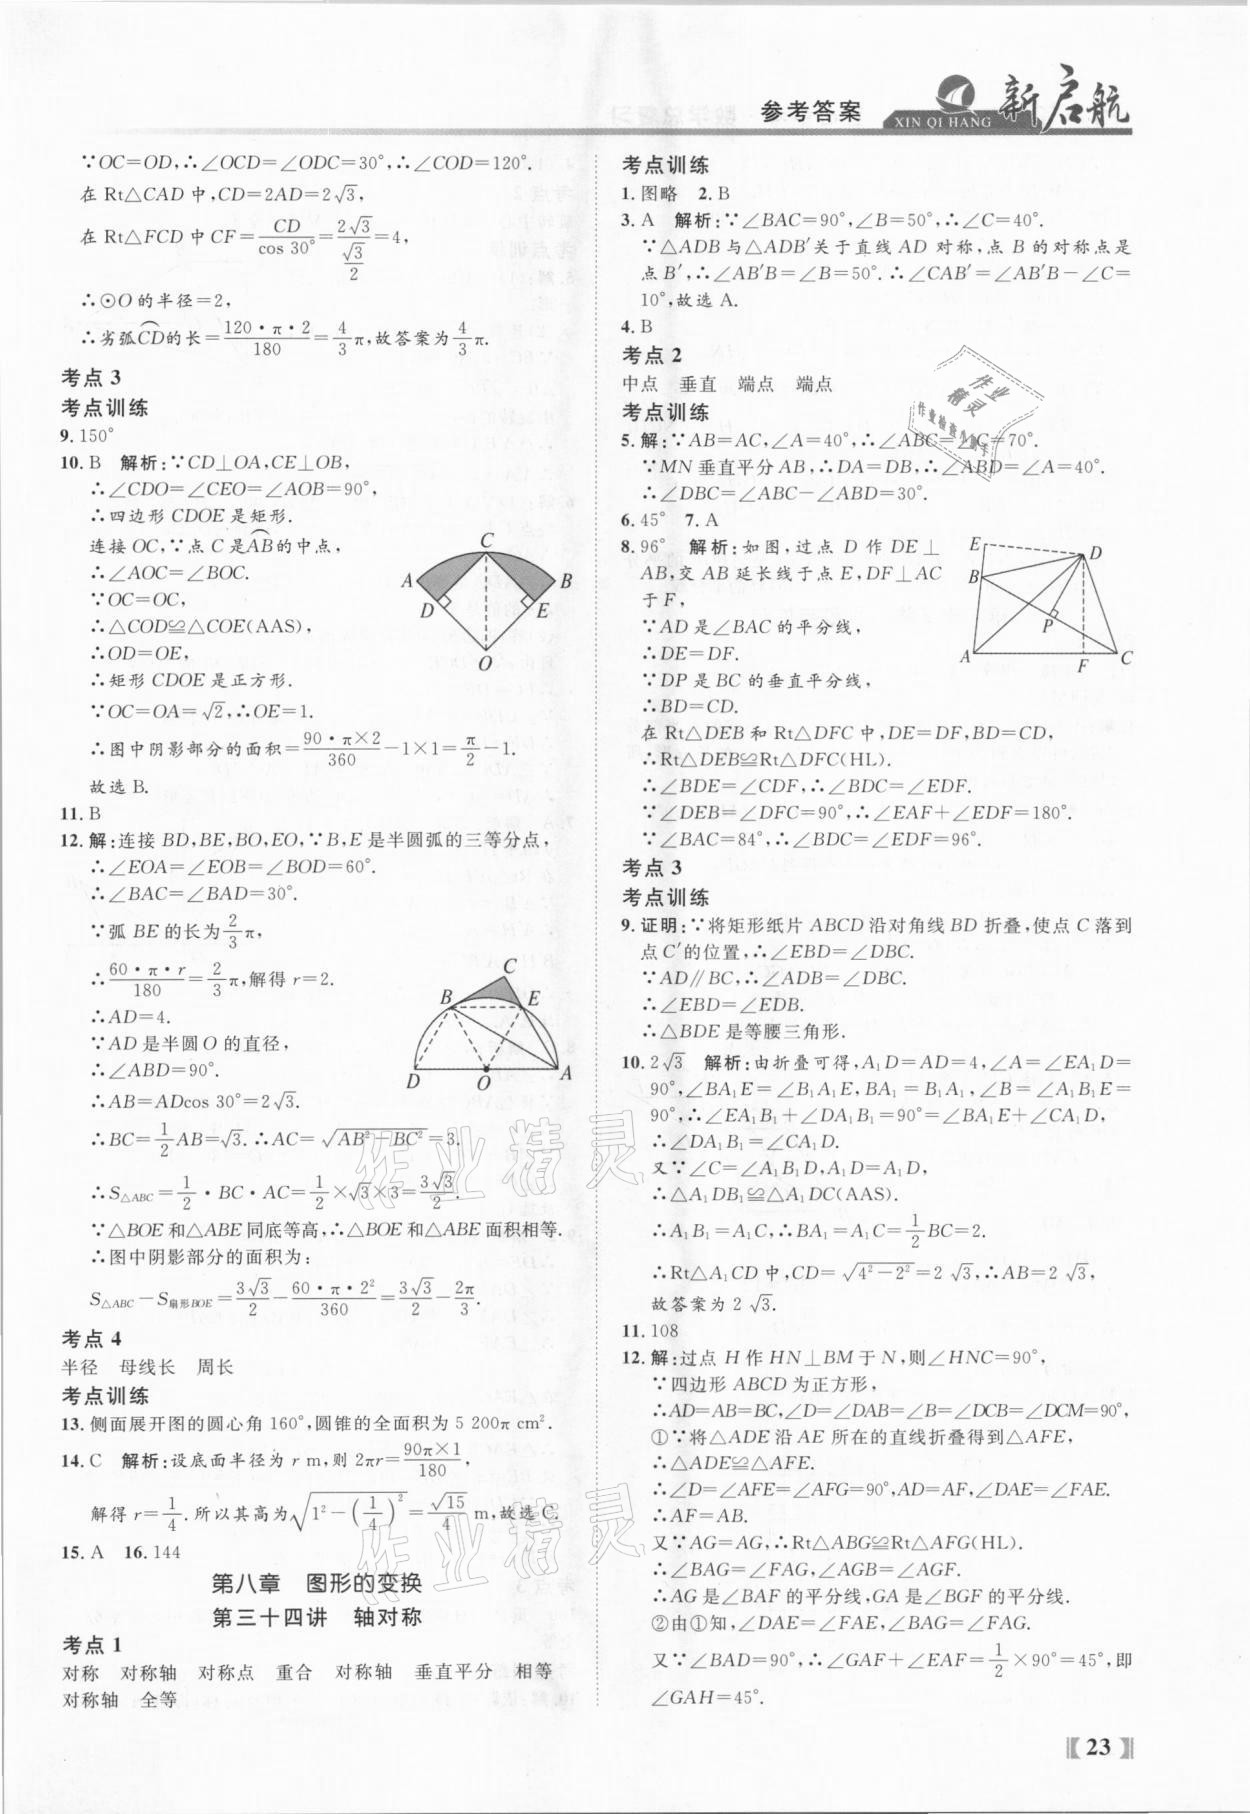 参考答案
XIN QI HANG
新启航
∵OC=OD,∴∠OCD=∠ODC=30°,∴∠COD=120°.
在 Rt△CAD 中,CD=2AD=2√3,
在 Rt△FCD 中 CF=CD/cos 30°=2√3/(√3/2)=4,
∴⊙O 的半径=2,
∴劣弧CD的长=120·π·2/180=4/3π,故答案为4/3π.
考点 3
考点训练
9. 150°
10. B 解析:∵CD⊥OA,CE⊥OB,
∴∠CDO=∠CEO=∠AOB=90°,
∴四边形 CDOE 是矩形.
连接 OC,∵点 C 是AB的中点,
∴∠AOC=∠BOC.
∵OC=OC,
∴△COD≌△COE(AAS),
∴OD=OE,
∴矩形 CDOE 是正方形.
∵OC=OA=√2,∴OE=1.
∴图中阴影部分的面积=90·π×2/360-1×1=π/2-1.
故选 B.
C
A
B
D
E
O
11. B
12. 解:连接 BD,BE,BO,EO,∵B,E 是半圆弧的三等分点,
∴∠EOA=∠EOB=∠BOD=60°.
∴∠BAC=∠BAD=30°.
∵弧 BE 的长为2/3π,
∴60·π·r/180=2/3π,解得 r=2.
∴AD=4.
∵AD 是半圆 O 的直径,
∴∠ABD=90°.
∴AB=ADcos 30°=2√3.
∴BC=1/2AB=√3.∴AC=√(AB²-BC²)=3.
∴S△ABC=1/2·BC·AC=1/2×√3×3=3√3/2.
∵△BOE 和△ABE 同底等高,∴△BOE 和△ABE 面积相等.
∴图中阴影部分的面积为:
S△ABC-S扇形BOE=3√3/2-60·π·2²/360=3√3/2-2π/3.
C
B
E
D
O
A
考点 4
半径 母线长 周长
考点训练
13. 侧面展开图的圆心角 160°,圆锥的全面积为 5 200π cm².
14. C 解析:设底面半径为 r m,则 2πr=90π×1/180,
解得 r=1/4.所以其高为√(1²-(1/4)²)=√15/4 m,故选 C.
15. A 16. 144
第八章 图形的变换
第三十四讲 轴对称
考点 1
对称 对称轴 对称点 重合 对称轴 垂直平分 相等
对称轴 全等
考点训练
1. 图略 2. B
3. A 解析:∵∠BAC=90°,∠B=50°,∴∠C=40°.
∵△ADB 与△ADB′关于直线 AD 对称,点 B 的对称点是
点 B′,∴∠AB′B=∠B=50°.∴∠CAB′=∠AB′B-∠C=
10°,故选 A.
4. B
考点 2
中点 垂直 端点 端点
考点训练
5. 解:∵AB=AC,∠A=40°,∴∠ABC=∠C=70°.
∵MN 垂直平分 AB,∴DA=DB,∴∠ABD=∠A=40°.
∴∠DBC=∠ABC-∠ABD=30°.
6. 45° 7. A
8. 96° 解析:如图,过点 D 作 DE⊥
AB,交 AB 延长线于点 E,DF⊥AC
于 F,
∵AD 是∠BAC 的平分线,
∴DE=DF.
∵DP 是 BC 的垂直平分线,
∴BD=CD.
在 Rt△DEB 和 Rt△DFC 中,DE=DF,BD=CD,
∴Rt△DEB≌Rt△DFC(HL).
∴∠BDE=∠CDF,∴∠BDC=∠EDF.
∵∠DEB=∠DFC=90°,∴∠EAF+∠EDF=180°.
∵∠BAC=84°,∴∠BDC=∠EDF=96°.
E
D
B
P
A
F
C
考点 3
考点训练
9. 证明:∵将矩形纸片 ABCD 沿对角线 BD 折叠,使点 C 落到
点 C′的位置,∴∠EBD=∠DBC.
∵AD∥BC,∴∠ADB=∠DBC.
∴∠EBD=∠EDB.
∴△BDE 是等腰三角形.
10. 2√3 解析:由折叠可得,A₁D=AD=4,∠A=∠EA₁D=
90°,∠BA₁E=∠B₁A₁E,BA₁=B₁A₁,∠B=∠A₁B₁E=
90°,∴∠EA₁B₁+∠DA₁B₁=90°=∠BA₁E+∠CA₁D,
∴∠DA₁B₁=∠CA₁D.
又∵∠C=∠A₁B₁D,A₁D=A₁D,
∴△A₁DB₁≌△A₁DC(AAS).
∴A₁B₁=A₁C,∴BA₁=A₁C=1/2BC=2.
∴Rt△A₁CD 中,CD=√(4²-2²)=2√3,∴AB=2√3,
故答案为 2√3.
11. 108
12. 解:过点 H 作 HN⊥BM 于 N,则∠HNC=90°,
∵四边形 ABCD 为正方形,
∴AD=AB=BC,∠D=∠DAB=∠B=∠DCB=∠DCM=90°,
①∵将△ADE 沿 AE 所在的直线折叠得到△AFE,
∴△ADE≌△AFE.
∴∠D=∠AFE=∠AFG=90°,AD=AF,∠DAE=∠FAE.
∴AF=AB.
又∵AG=AG,∴Rt△ABG≌Rt△AFG(HL).
∴∠BAG=∠FAG,∠AGB=∠AGF.
∴AG 是∠BAF 的平分线,GA 是∠BGF 的平分线.
②由①知,∠DAE=∠FAE,∠BAG=∠FAG.
又∵∠BAD=90°,∴∠GAF+∠EAF=1/2×90°=45°,即
∠GAH=45°.
作业精灵
作业检查小能手
作业精灵
作业精灵
23